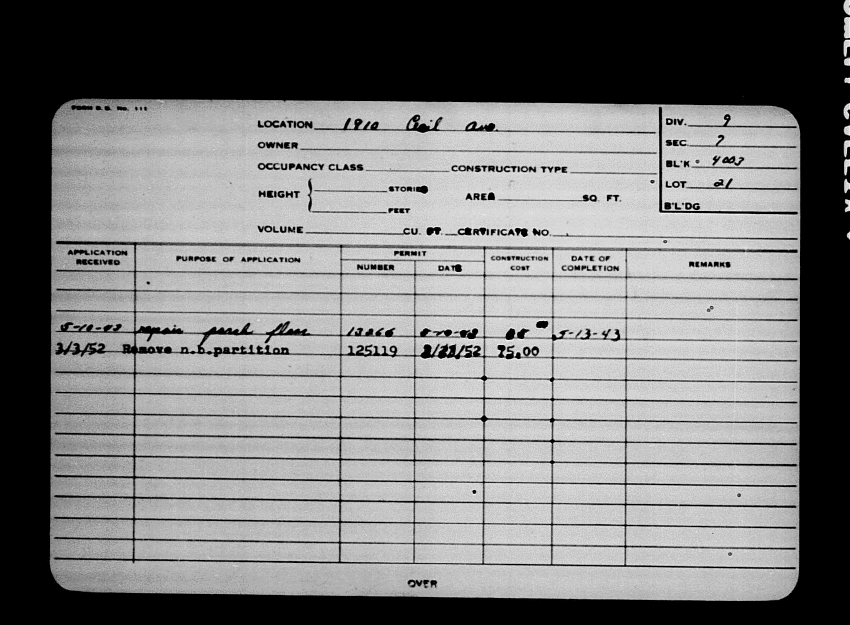 FORM B.B. No. 111
LOCATION 1910 Cecil ave.
OWNER
OCCUPANCY CLASS CONSTRUCTION TYPE
HEIGHT { STORIES
FEET
AREA SQ. FT.
VOLUME CU. FT. CERTIFICATE NO.
DIV. 9
SEC 7
BL'K 4003
LOT 21
B'L'DG
APPLICATION RECEIVED PURPOSE OF APPLICATION PERMIT NUMBER DATE CONSTRUCTION COST DATE OF COMPLETION REMARKS
5-10-43 repair porch floor 13266 5-10-43 5-13-43
3/3/52 Remove n.b.partition 125119 75.00
OVER